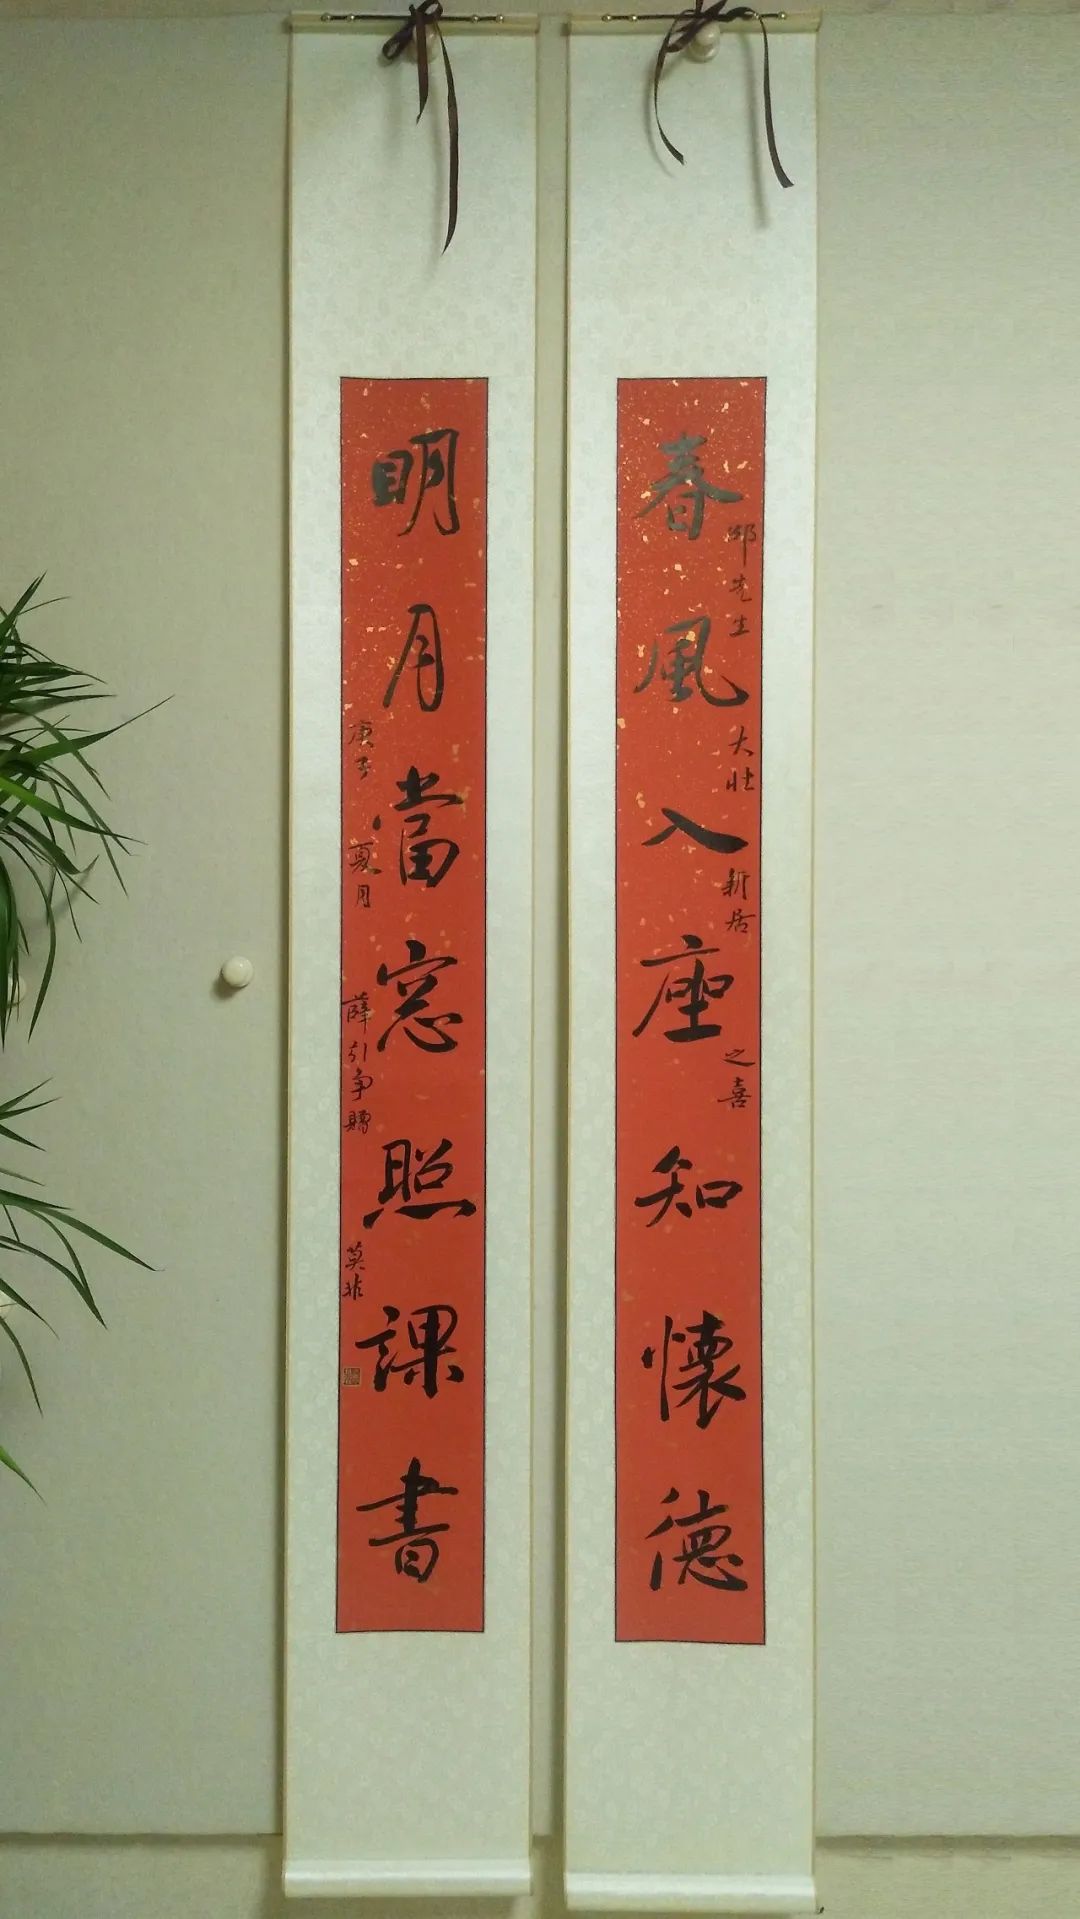 春風入座知懷德
邻先生 大壯 新居 之喜
明月當窓照課書
庚子 夏月 薛引争贈 莫非